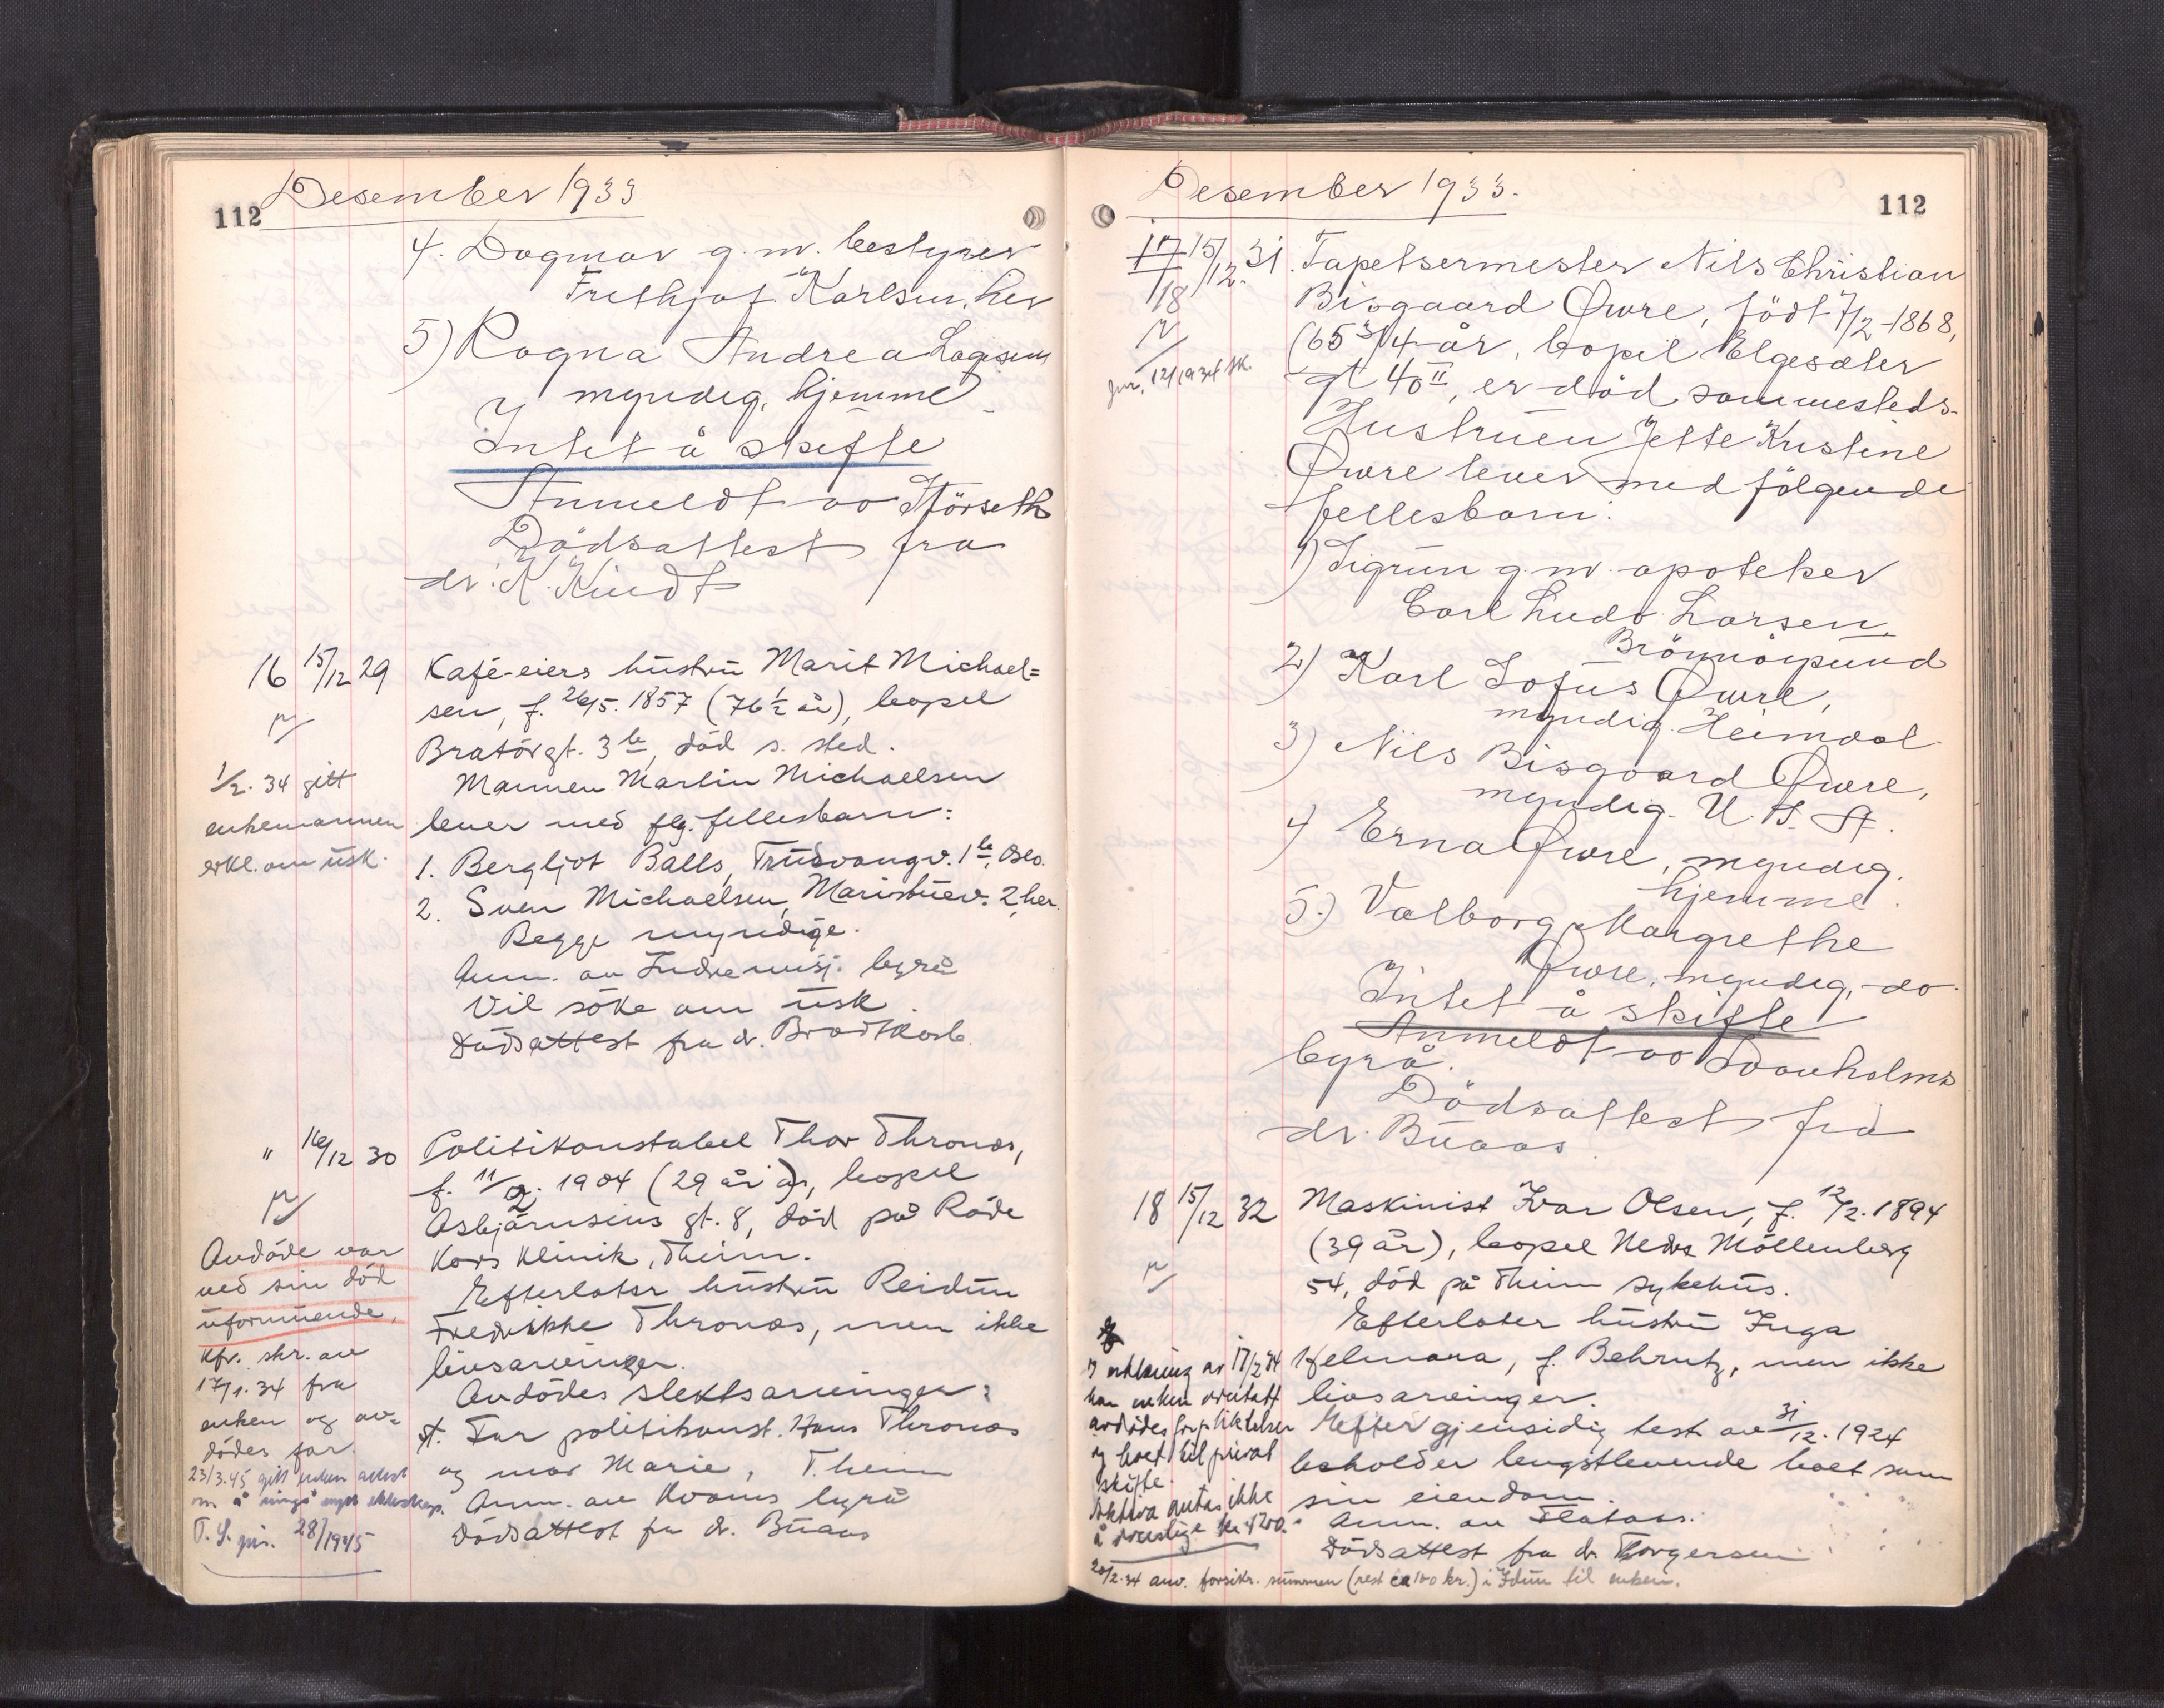 Desember 1933
112
4. Dagmar g.m. bestyrer
Frithjof Karlsen, her
5) Ragna Andrea
myndig, hjemme
Intet å skifte
Anmeldt av
Dödsattest fra
dr. K. Kindt
16 15/12 29 Kafé-eiers hustru Marit Michael=
sen, f. 26/5. 1857 (76 1/2 år), bopel
Bratörgt. 3 b, död s. sted.
Mannen Martin Michaelsen
1/2. 34 gitt
enkemannen
erkl. om usk.
lever med flg. fellesbarn:
1. Bergljot Balls, Trudvangv. 1 b, Oslo.
2. Sven Michaelsen, Marisbuev. 2, her.
Begge myndige.
Anm. av Indremisj. byrå
Vil söke om usk.
Dödsattest fra dr. Bradtkorb.
" 16/12 30 Politikonstabel Thor Thronæs,
f. 11/2. 1904 (29 år), bopel
Asbjörnsens gt. 8, död på Röde
Kors Klinik, Theim.
Efterlater hustru Reidun
Fredrikke Thronæs, men ikke
livsarvinger.
Avdödes slektsarvinger:
Far politikonst. Hans Thronæs
og mor Marie, Theim
Anm. av Kvams byrå
Dödsattest fra dr. Buaas
Avdöde var
ved sin död
uformuende,
kfr. skr. av
17/1. 34 fra
enken og av=
dödes far.
23/3.45 gitt enken attest
om å inngå nytt ekteskap.
T. S. jnr. 28/1945
Desember 1933.
112
17 15/12. 31. Tapetsermester Nils Christian
18
Bisgaard Qwre, födt 7/2 - 1868,
(65 3/4 år, bopel Elgesæter
jnr. 12/1934 sk.
gt 40 II, er död sammesteds.
Hustruen Jette Kristine
Qwre lever med fölgende
fellesbarn:
1) Sigrun g.m. apoteker
Carl Ludv. Larsen,
Brönnöysund
2) Karl Sofus Qwre,
myndig. Heimdal
3) Nils Bisgaard Qwre,
myndig. U. S. A.
4) Erna Qwre, myndig.
hjemme.
5.) Valborg Margrethe
Qwre, myndig, do
Intet å skifte
Anmeldt av Svanholms
byrå.
Dödsattest fra
dr. Buaas
18 15/12 32 Maskinist Ivar Olsen, f. 12/2. 1894
(39 år), bopel Nedre Möllenberg
54, död på Theim sykehus.
Efterlater hustru Inga
Helmara, f. Behrntz, men ikke
livsarvinger.
Efter gjensidig test. av 31/12. 1924
beholder lengstlevende boet som
sin eiendom.
Anm. av Flataas.
Dödsattest fra dr. Torgersen
I erklæring av 17/2 34
har enken overtatt
avdödes forpliktelser
og boet til privat
skifte.
Aktiva antas ikke
å overstige kr. 1200.
20/2.34 anv. forsikr. summen (rest ca 100 kr.) i Idun til enken.